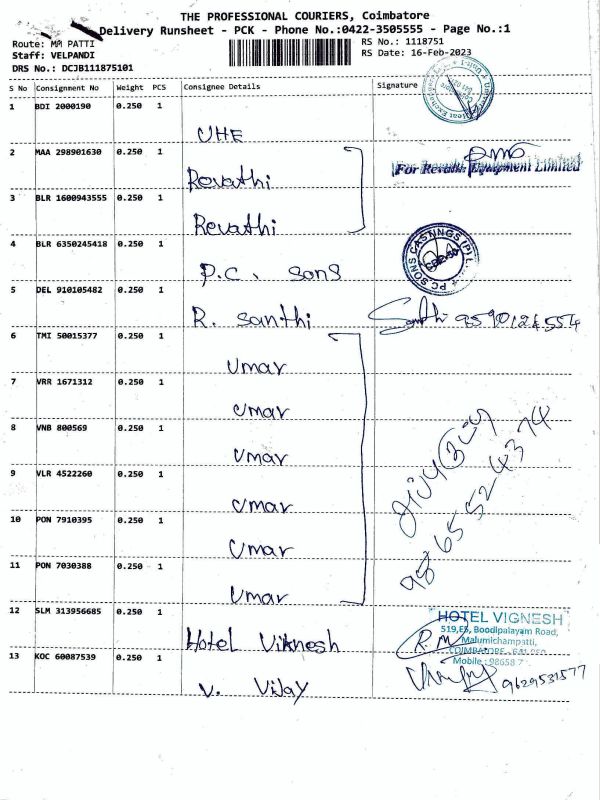 THE PROFESSIONAL COURIERS, Coimbatore
Delivery Runsheet - PCK - Phone No.:0422-3505555 - Page No.:1
Route: MM PATTI RS No.: 1118751
Staff: VELPANDI RS Date: 16-Feb-2023
DRS No.: DCJB111875101
S No Consignment No Weight PCS Consignee Details Signature
1 BDI 2000190 0.250 1
UHE
2 MAA 298901630 0.250 1
For Revathi Equipment Limited
Revathi
3 BLR 1600943555 0.250 1
Revathi
4 BLR 6350245418 0.250 1
P.C. Sons
PC SONS CASNNGS (P)
5 DEL 910105482 0.250 1
R. Santhi Santhi 9590124554
6 TMI 50015377 0.250 1
Umar
7 VRR 1671312 0.250 1
Umar
8 VNB 800569 0.250 1
Umar
9 VLR 4522260 0.250 1
Umar
98 65524374
10 PON 7910395 0.250 1
Umar
11 PON 7030388 0.250 1
Umar
12 SLM 313956685 0.250 1
HOTEL VIGNESH
519,E5, Boodipalayam Road,
Malumichampatti,
COIMBATORE
Mobile : 98658 7
Hotel Viknesh R.M
13 KOC 60087539 0.250 1
V. Vijay 9629531577